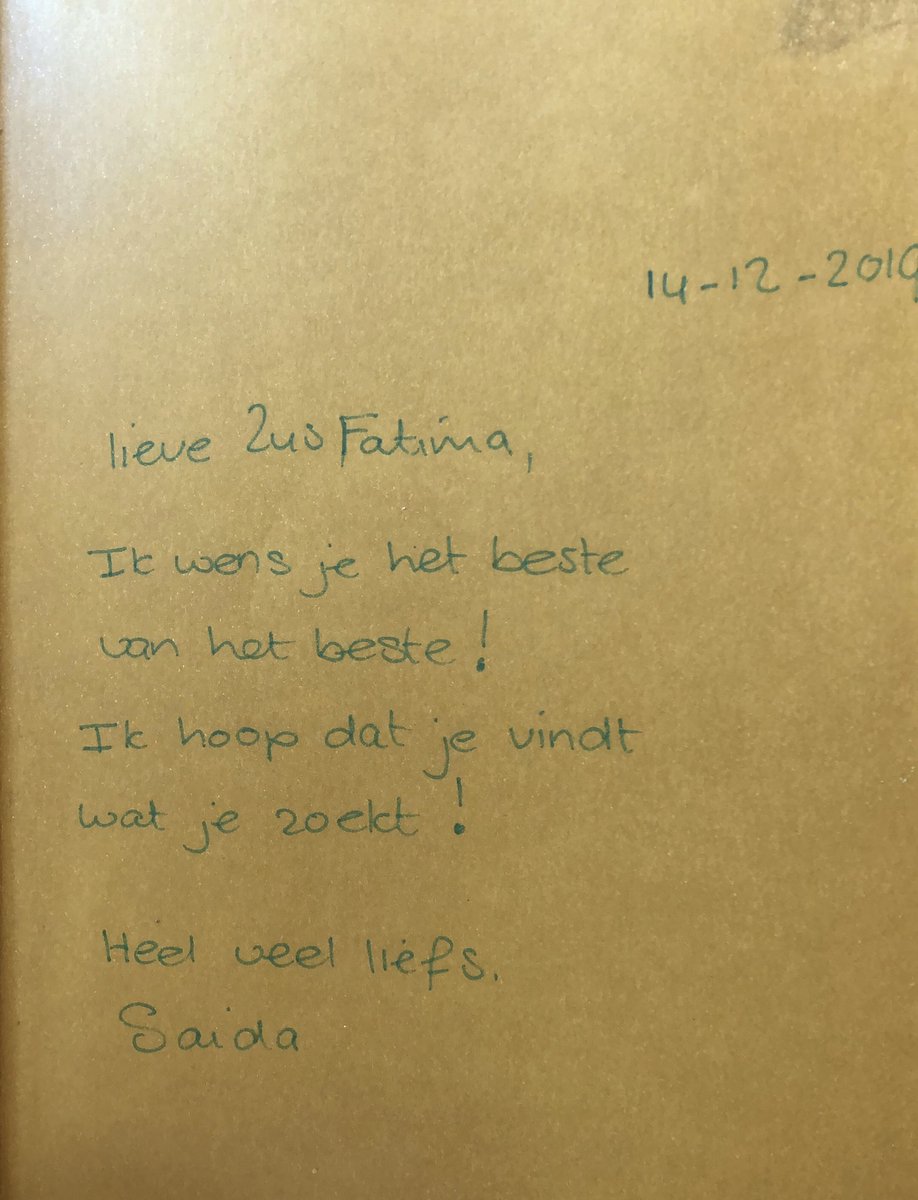 14-12-2019
lieve Zus Fatima,
Ik wens je het beste
van het beste!
Ik hoop dat je vindt
wat je zoekt!
Heel veel liefs.
Saida